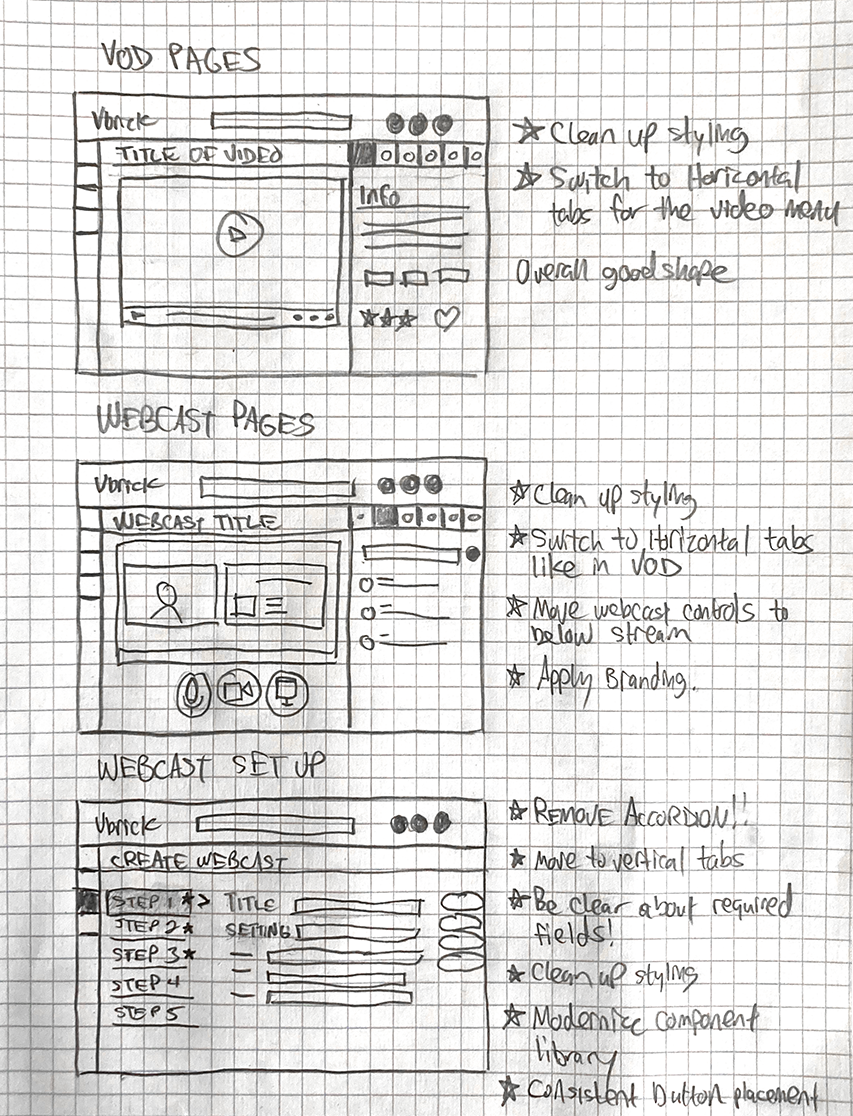 VOD PAGES
Vbrick
TITLE OF VIDEO
Info
☆ Clean up styling
☆ Switch to Horizontal
tabs for the video menu
Overall good shape
WEBCAST PAGES
Vbrick
WEBCAST TITLE
☆ Clean up styling
☆ Switch to Horizontal tabs
like in VOD
☆ Move webcast controls to
below stream
☆ Apply Branding.
WEBCAST SET UP
Vbrick
CREATE WEBCAST
STEP 1 ★ >
STEP 2 ★
STEP 3 ★
STEP 4
STEP 5
TITLE
SETTING
☆ REMOVE ACCORDION!!
☆ move to vertical tabs
☆ Be clear about required
fields!
☆ Clean up styling
☆ Modernize component
library
☆ Consistent Button placement